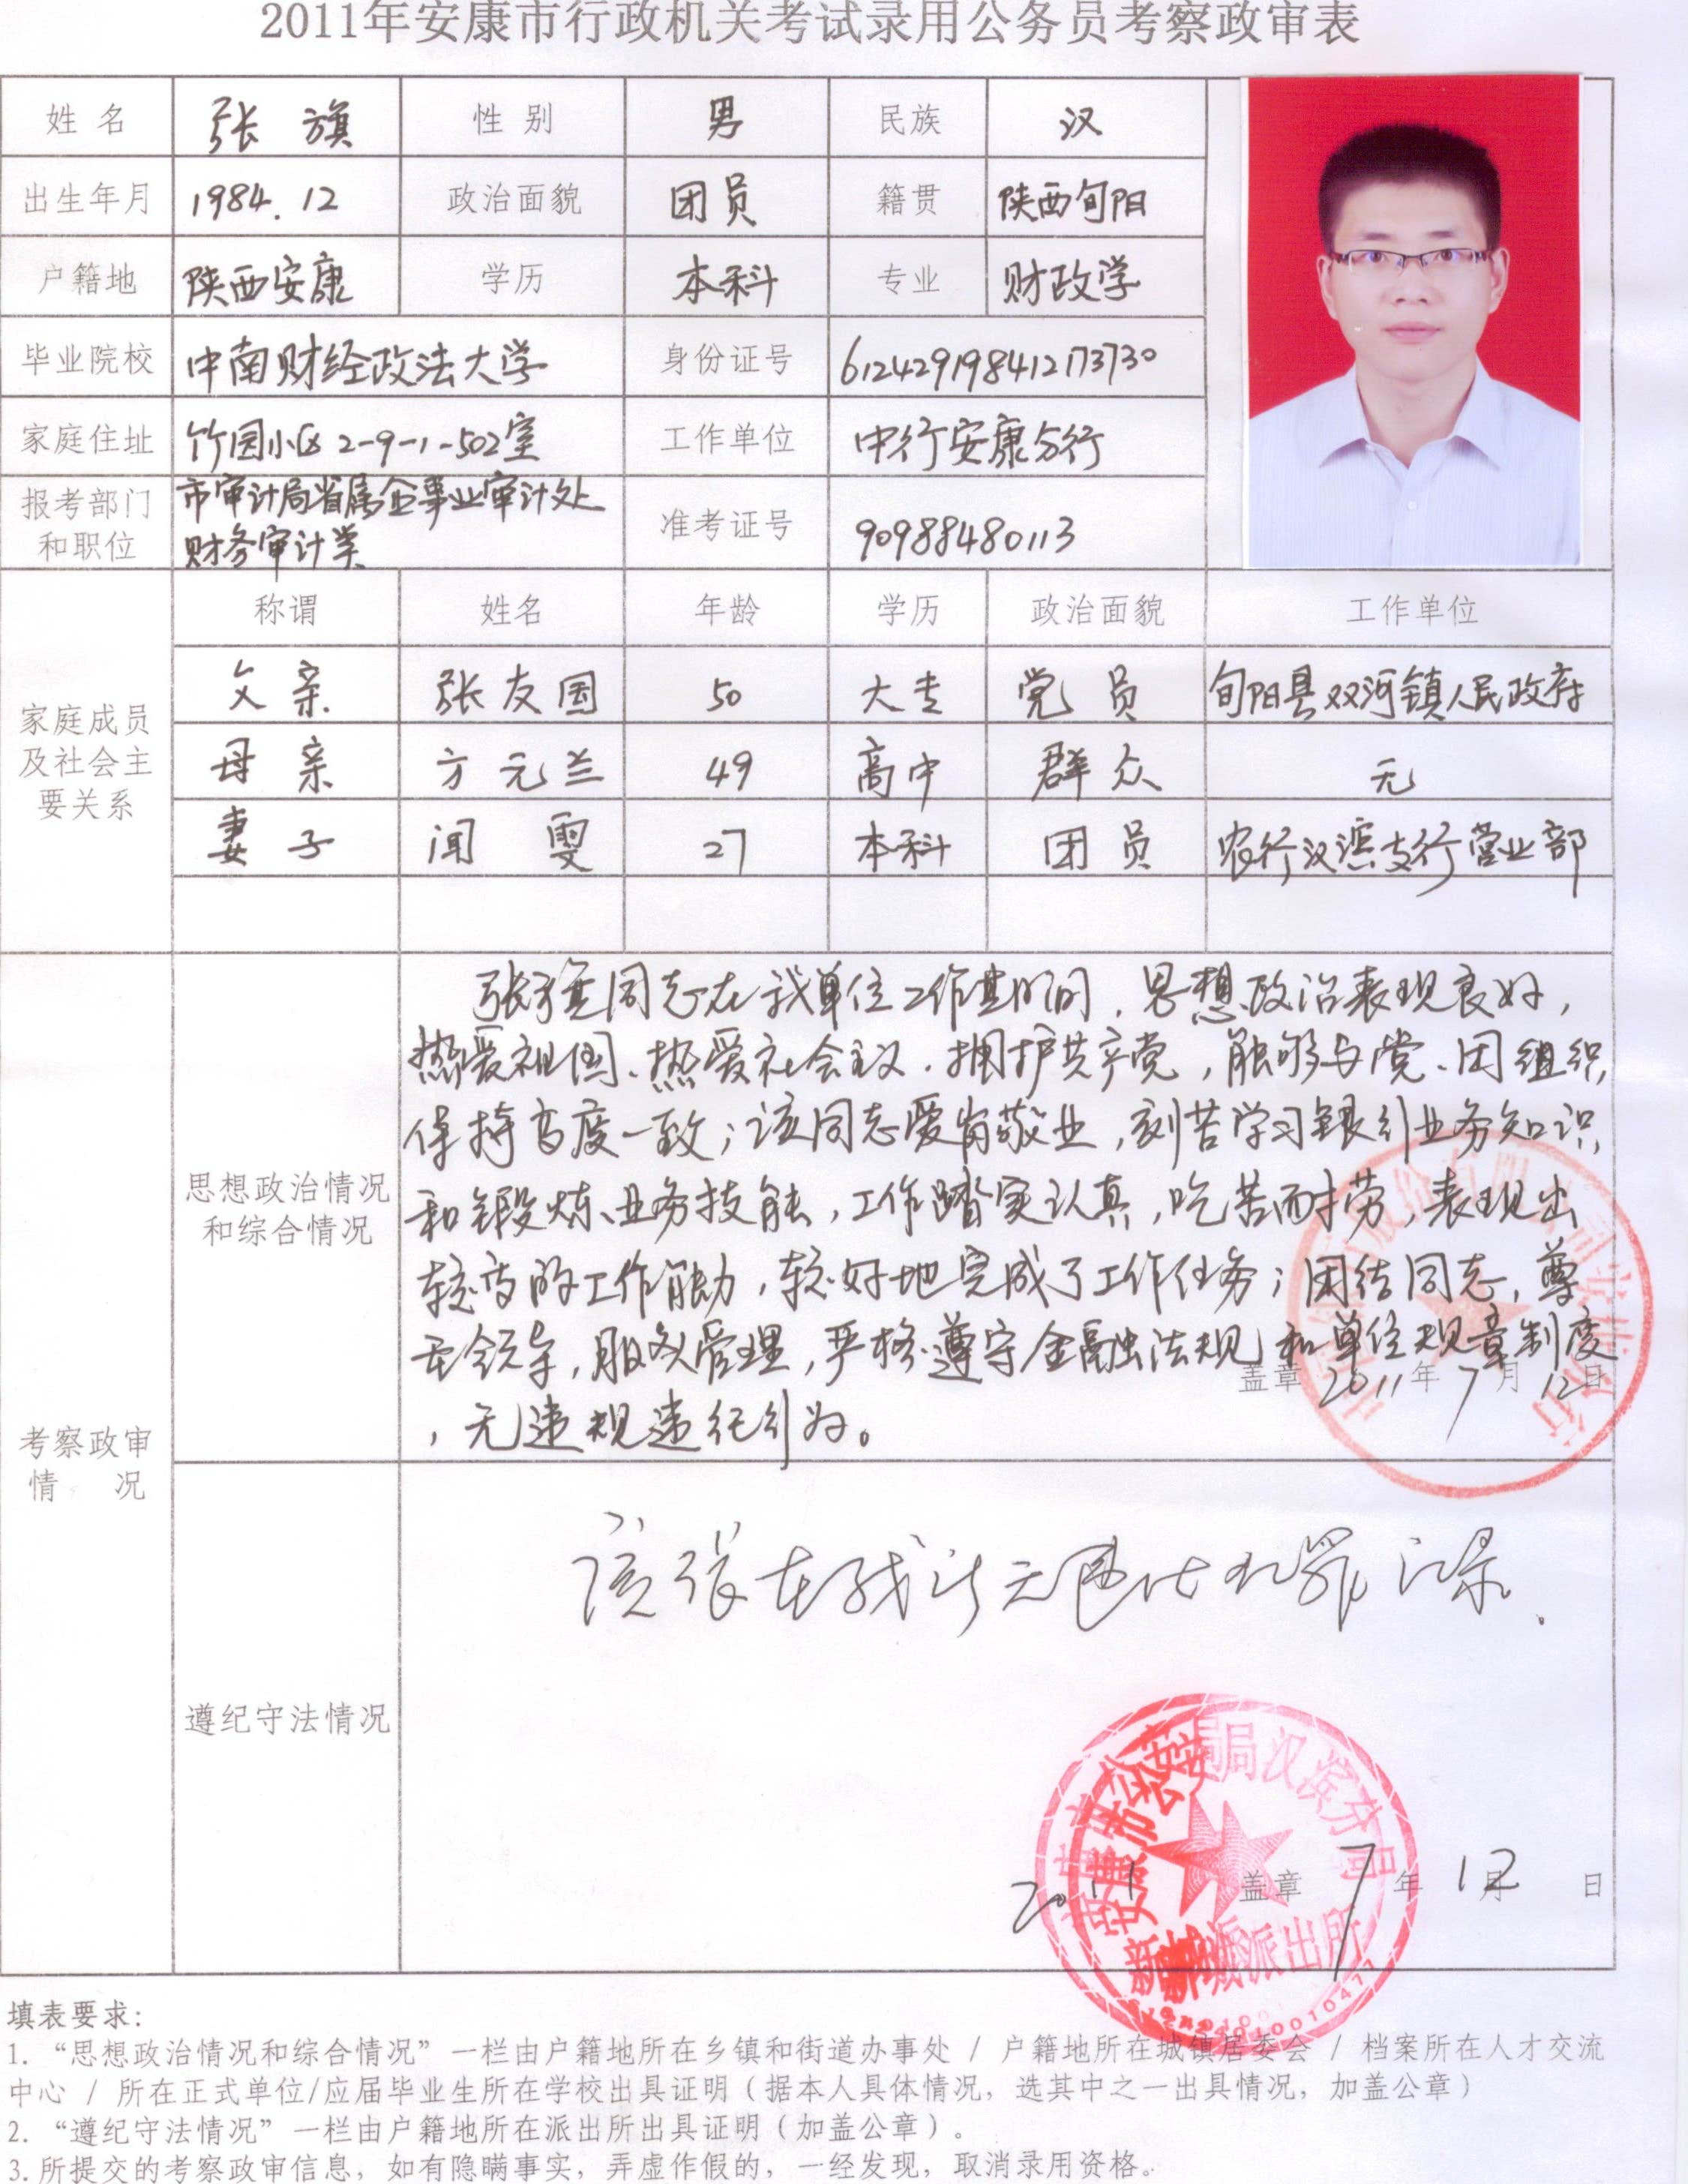 2011年安康市行政机关考试录用公务员考察政审表
姓 名 张 旗 性 别 男 民族 汉
出生年月 1984.12 政治面貌 团员 籍贯 陕西旬阳
户籍地 陕西安康 学历 本科 专业 财政学
毕业院校 中南财经政法大学 身份证号 612429198412173730
家庭住址 竹园小区2-9-1-502室 工作单位 中行安康分行
报考部门和职位 市审计局省属企事业审计处
财务审计类 准考证号 90988480113
家庭成员及社会主要关系
称谓 姓名 年龄 学历 政治面貌 工作单位
父亲 张友国 50 大专 党员 旬阳县双河镇人民政府
母亲 方元兰 49 高中 群众 无
妻子 闻雯 27 本科 团员 农行汉滨支行营业部
考察政审情 况
思想政治情况和综合情况
张旗同志在我单位工作期间，思想政治表现良好，
热爱祖国、热爱社会主义，拥护共产党，能够与党、团组织
保持高度一致；该同志爱岗敬业，刻苦学习银行业务知识
和锻炼业务技能，工作踏实认真，吃苦耐劳，表现出
较高的工作能力，较好地完成了工作任务；团结同志，尊
重领导，服从管理，严格遵守金融法规和单位规章制度
，无违规违纪行为。
盖章 2011年7月12日
遵纪守法情况
该张在我所无违法犯罪记录.
安康市公安局汉滨分局
新城派出所
盖章 2011 年 7 月 12 日
填表要求：
1. “思想政治情况和综合情况”一栏由户籍地所在乡镇和街道办事处 / 户籍地所在城镇居委会 / 档案所在人才交流
中心 / 所在正式单位/应届毕业生所在学校出具证明（据本人具体情况，选其中之一出具情况，加盖公章）
2. “遵纪守法情况”一栏由户籍地所在派出所出具证明（加盖公章）。
3. 所提交的考察政审信息，如有隐瞒事实，弄虚作假的，一经发现，取消录用资格。